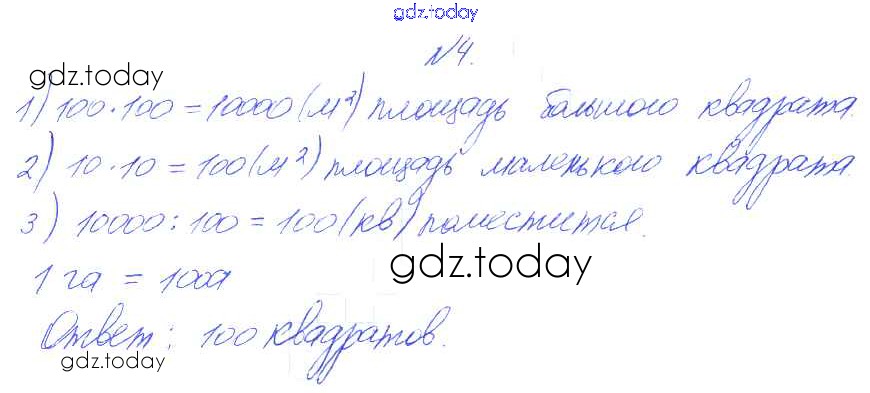 gdz.today
№4.
gdz.today
1) 100·100 = 10000 (м²) площадь большого квадрата.
2) 10·10 = 100 (м²) площадь маленького квадрата.
3) 10000 : 100 = 100 (кв) поместится.
1 га = 100а
gdz.today
Ответ: 100 квадратов.
gdz.today